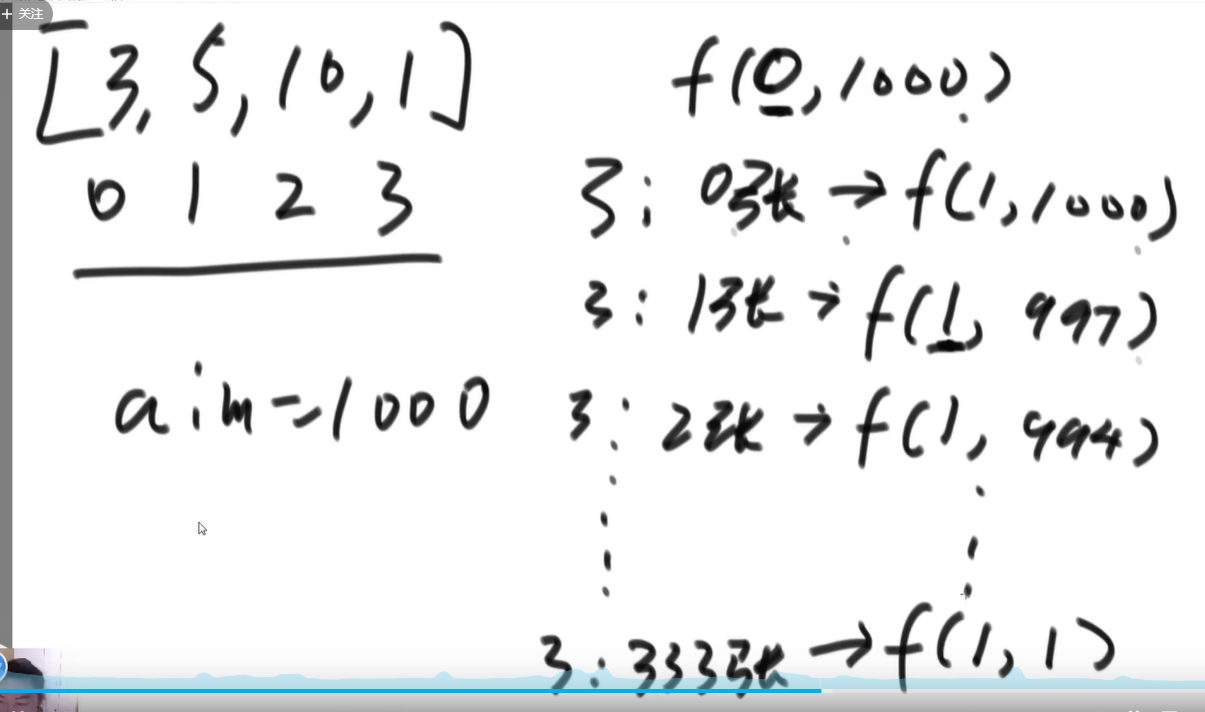 + 关注
[3, 5, 10, 1]
0 1 2 3
aim=1000
f(0, 1000)
3: 0张 → f(1, 1000)
3: 1张 → f(1, 997)
3: 2张 → f(1, 994)
3: 333张 → f(1, 1)